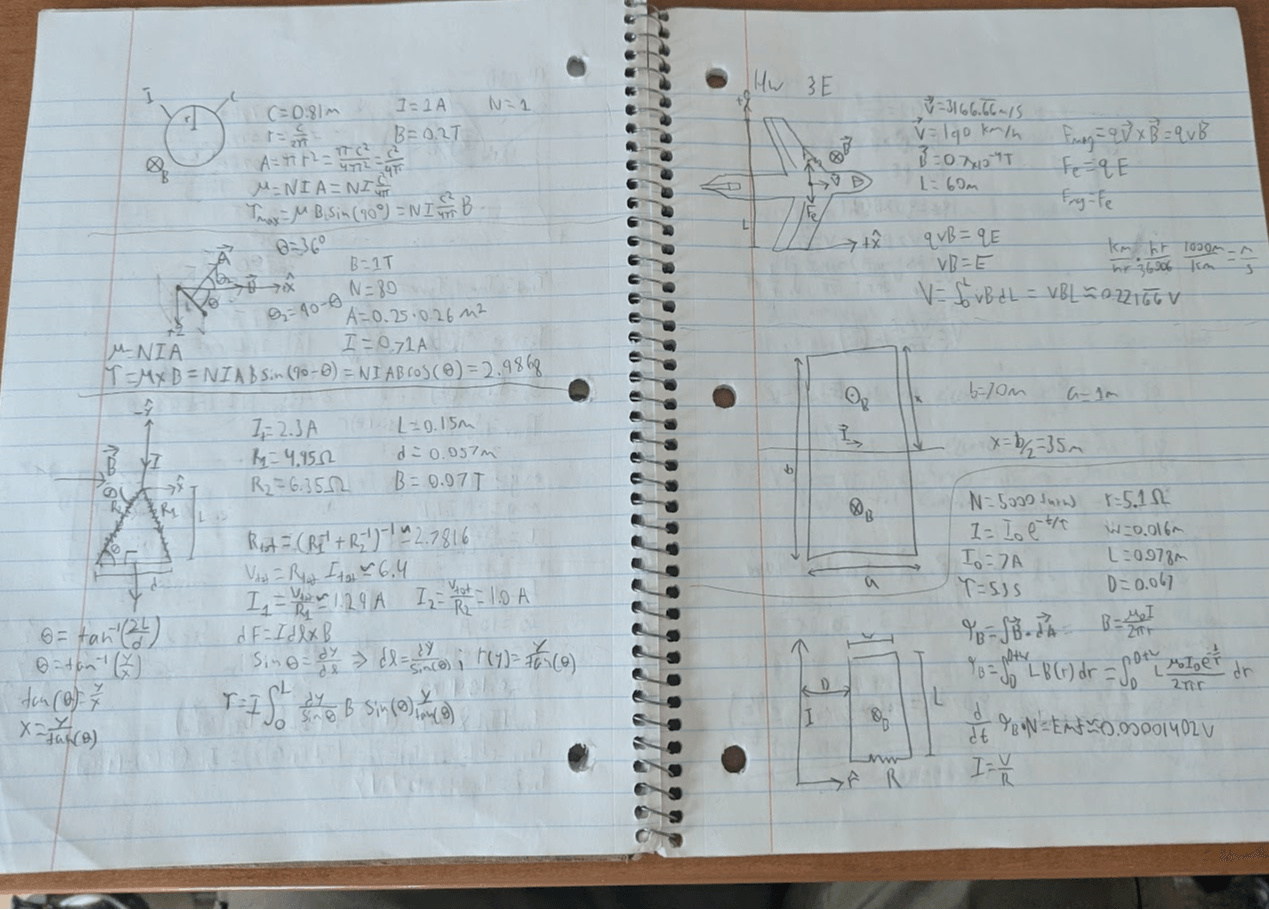 I C
r
⊗B
C=0.81m I=1A N=1
r=C/2π B=0.2T
A=πr²=πC²/4π²=C²/4π
μ=NIA=NI C²/4π
τmax=μB sin(90°)=NI C²/4π B
θ=36°
A
B x̂
θ
+ẑ
B=1T
N=80
θ₂=90-θ A=0.25·0.26 m²
I=0.71A
μ=NIA
τ=μ×B=NIAB sin(90-θ)=NIABcos(θ)=2.9868
-ŷ
B I
x̂
R₂ R₁ L
θ
d
I₁=2.3A L=0.15m
R₁=4.95Ω d=0.057m
R₂=6.35Ω B=0.07T
Rtot=(R₁⁻¹+R₂⁻¹)⁻¹≈2.7816
Vtot=Rtot Itot≈6.4
I₁=Vtot/R₁≈1.29A I₂=Vtot/R₂=1.0A
θ=tan⁻¹(2L/d) dF=Idl×B
θ=tan⁻¹(y/x) sinθ=dy/dl ⇒ dl=dy/sin(θ) ; r(y)=y/tan(θ)
tan(θ)=y/x τ=I∫₀ᴸ dy/sinθ B sin(θ) y/tan(θ)
x=y/tan(θ)
HW 3E
⊗B
v
Fe
L
+x̂
V=3166.66m/s
V=190 km/h Fmag=qV×B=qvB
B=0.7×10⁻⁴T Fe=qE
L=60m Fmg=Fe
qvB=qE km/hr · hr/3600s 1000m/km=m/s
vB=E
V=∫₀ᴸ vBdL = vBL≈0.22166V
⊙B
x
I
b
⊗B
a
b=70m a=1m
x=b/2=35m
N=5000 turns r=5.1Ω
I=I₀e^(-t/τ) w=0.016m
I₀=7A L=0.078m
τ=5.5s D=0.067
φB=∫B·dA B=μ₀I/2πr
φB=∫_D^(D+w) LB(r)dr=∫_D^(D+w) L μ₀I₀e^(-t/τ)/2πr dr
d/dt φB·N=Emf≈0.00001402V
I=V/R
w
D
I
⊗B
L
r̂ R